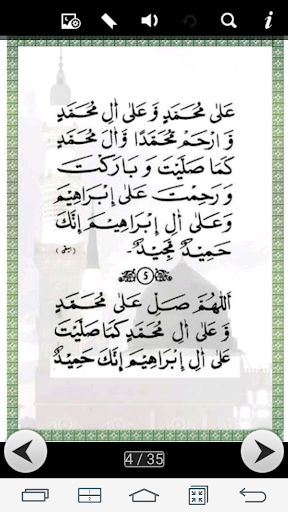 عَلٰى مُحَمَّدٍ وَّ عَلٰى اٰلِ مُحَمَّدٍ
وَّ ارْحَمْ مُحَمَّدًا وَّاٰلَ مُحَمَّدٍ
كَمَا صَلَّيْتَ وَ بَارَكْتَ
وَ رَحِمْتَ عَلٰى اِبْرَاهِيْمَ
وَعَلٰى اٰلِ اِبْرَاهِيْمَ اِنَّكَ
حَمِيْدٌ مَّجِيْدٌ
5
اَللّٰهُمَّ صَلِّ عَلٰى مُحَمَّدٍ
وَّ عَلٰى اٰلِ مُحَمَّدٍ كَمَا صَلَّيْتَ
عَلٰى اٰلِ اِبْرَاهِيْمَ اِنَّكَ حَمِيْدٌ
4 / 35